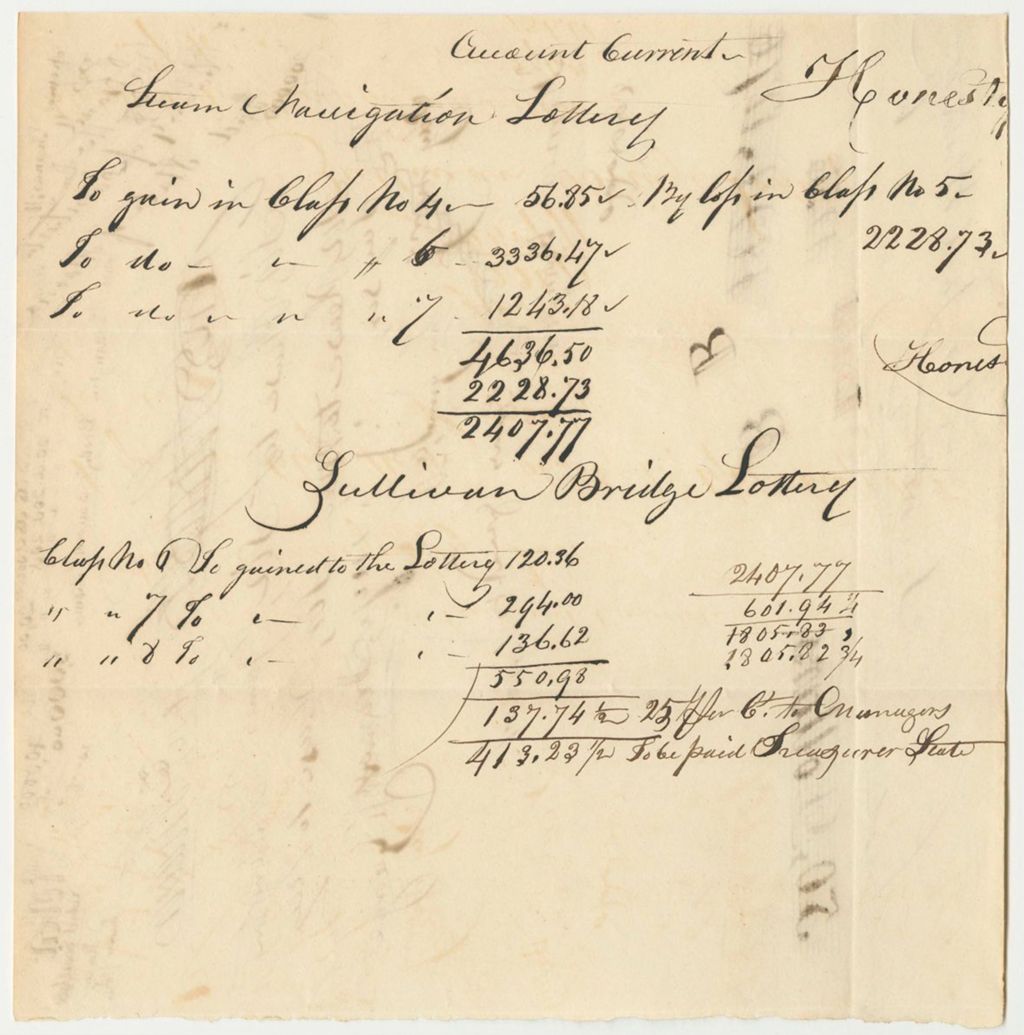 Account Current
Honesty
Steam Navigation Lottery
To gain in Class No 4 56.85 By loss in Class No 5
2228.73
To do " 6 3336.47
To do " " " 7 1243.18
4636.50
2228.73
2407.77
Hones
B
Sullivan Bridge Lottery
Class No 6 To gained to the Lottery 120.36
" " 7 To " " 294.00
" " 8 To " " 136.62
550.98
137.74 1/2 25 Per Ct. to Managers
413.23 1/2 To be paid Treasurer State
2407.77
601.94 1/4
1805.83
1805.82 3/4